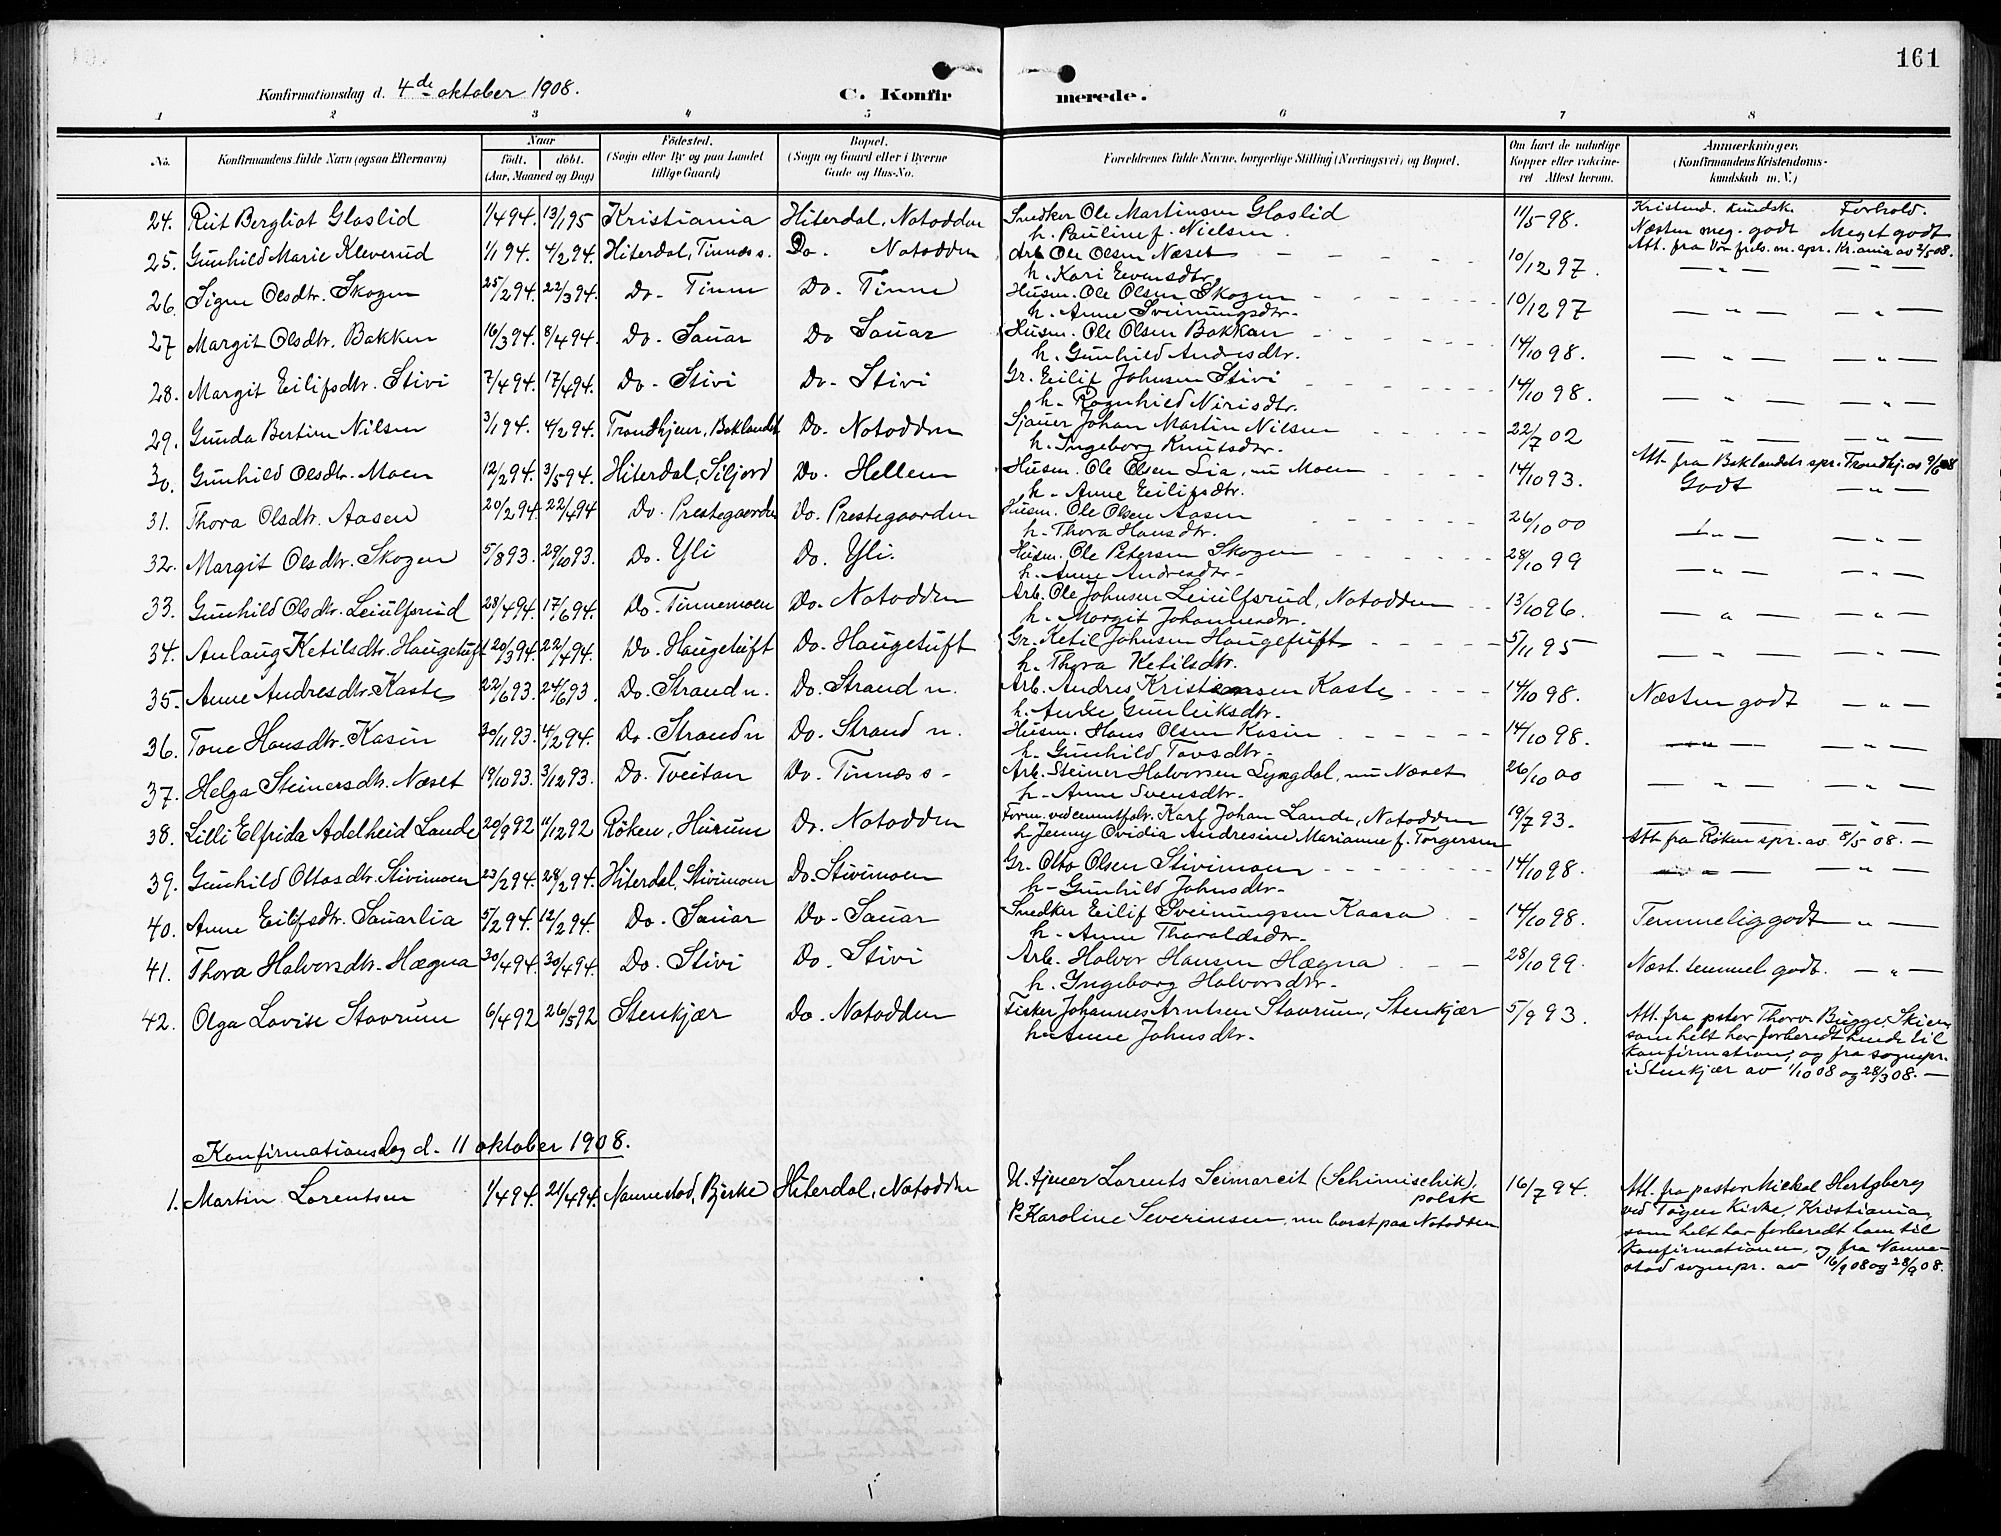 161
Konfirmationsdag d. 4de oktober 1908. C. Konfirmerede.
1 2 3 4 5 6 7 8
No. Konfirmandens fulde Navn (ogsaa Efternavn) Naar födt. döbt. (Aar, Maaned og Dag) Födested. (Sogn eller By og paa Landet tillige Gaard) Bopæl. (Sogn og Gaard eller i Byerne Gade og Hus-No. Forældrenes fulde Navne, borgerlige Stilling (Næringsvei) og Bopæl. Om havt de naturlige Kopper eller vakcineret Attest herom. Anmærkninger. (Konfirmandens Kristendomskundskab m. V.)
24. Rut Bergliot Glaslid 1/4 94. 13/1 95 Kristiania Hiterdal, Notodden Snedker Ole Martinsen Glaslid 11/5 98. Kristend. kundsk. Forhold.
h. Pauline f. Nielsen Næsten meg. godt Meget godt
Att. fra Vor frels. m. spr. Kr.ania av 2/5 08.
25. Gunhild Marie Kleverud 1/1 94. 4/2 94. Hiterdal, Tinnæs s. Do. Notodden Arb. Ole Olsen Næset 10/12 97. — „ — — „ —
h. Kari Evensdtr.
26. Signe Olsdtr. Skogen 25/2 94. 22/3 94. Do. Tinne Do. Tinne Husm. Ole Olsen Skogen 10/12 97 — „ — — „ —
h. Anne Sveinungsdtr.
27 Margit Olsdtr. Bakken 16/3 94. 8/4 94. Do. Sauar Do Sauar Husm. Ole Olsen Bakkan 14/10 98. — „ — — „ —
h. Gunhild Andresdtr.
28. Margit Eilifsdtr. Stivi 7/4 94. 17/4 94. Do. Stivi Do. Stivi Gr. Eilif Johnsen Stivi 14/10 98. — „ — — „ —
h. Ragnhild Nirisdtr.
29. Gunda Bertine Nilsen 3/1 94. 4/2 94. Trondhjem, Baklandet Do. Notodden Sjauer Johan Martin Nilsen 22/7 02 — „ — — „ —
h. Ingeborg Knutsdtr. Att. fra Baklandets spr. Trondhj. av 9/6 08
30. Gunhild Olsdtr. Moen 12/2 94. 3/5 94. Hiterdal, Siljord Do. Hellem Husm. Ole Olsen Lia, nu Moen 14/10 93. Godt — „ —
h. Anne Eilifsdtr.
31. Thora Olsdtr. Aasen 20/2 94. 22/4 94 Do. Prestegaarden Do. Prestegaarden Husm. Ole Olsen Aasen 26/10 00 — „ — — „ —
h. Thora Hansdtr.
32. Margit Olsdtr. Skogen 5/8 93. 29/10 93. Do. Yli Do. Yli. Husm. Ole Petersen Skogen 28/10 99 — „ — — „ —
h. Anne Andresdtr.
33. Gunhild Olsdtr. Leiulfsrud 28/4 94. 17/6 94. Do. Tinnemoen Do. Notodden Arb. Ole Johnsen Leiulfsrud, Notodden 13/10 96. — „ — — „ —
h. Margit Johannesdtr.
34. Anlaug Ketilsdtr. Haugetuft 20/3 94. 22/4 94. Do. Haugetuft Do. Haugetuft Gr. Ketil Johnsen Haugetuft 5/11 95 — „ — — „ —
h. Thora Ketilsdtr.
35. Anne Andresdtr. Kaste 22/6 93. 24/6 93. Do. Strand n. Do. Strand n. Arb. Andres Kristensen Kaste 14/10 98. Næsten godt — „ —
h. Gunleiksdtr.
36. Tone Hansdtr. Kasin 30/11 93. 4/2 94. Do. Strand n Do. Strand n. Husm. Hans Olsen Kasin 14/10 98. — „ — — „ —
h. Gunhild Tovsdtr.
37. Helga Steinersdtr. Næset 19/10 93. 3/12 93. Do. Tveitan Do. Tinnæs s. Arb. Steiner Halvorsen Lyngdal, nu Næset 26/10 00 — „ — — „ —
h. Anne Svensdtr.
38. Lilli Elfrida Adelheid Lande 20/9 92 11/12 92 Röken, Hurum Do. Notodden Form. ved cementfabr. Karl Johan Lande, Notodden 19/7 93. — „ — — „ —
h. Jenny Ovidia Andresine Marianne f. Torgersen Att. fra Röken spr. av 8/5 08. —
39. Gunhild Ottosdtr. Stivimoen 23/2 94. 28/2 94. Hiterdal, Stivimoen Do. Stivimoen Gr. Otto Olsen Stivimoen 14/10 98. — „ — — „ —
h. Gunhild Johnsdtr.
40. Anne Eilifsdtr. Sauarlia 5/2 94. 12/2 94. Do. Sauar Do. Sauar Snedker Eilif Sveinungsen Kaasa 14/10 98. Temmelig godt — „ —
h. Anne Thoraldsdtr.
41. Thora Halvorsdtr. Hægna 30/4 94. 30/4 94. Do. Stivi Do. Stivi Arb. Halvor Hansen Hægna 28/10 99. Næst. temmel. godt. — „ —
h. Ingeborg Halvorsdtr.
42. Olga Lovise Stavrum 6/4 92 26/5 92 Stenkjær Do. Notodden Fisker Johannes Arntsen Stavrum, Stenkjær 5/9 93. Att. fra pstor Thorv. Bugge, Skien,
h. Anne Johnsdtr. som helt har forberedt hende til
konfirmation, og fra sognepr.
i Stenkjær av 1/10 08 og 28/3 08. —
Konfirmationsdag d. 11 oktober 1908.
1. Martin Lorentsen 1/4 94. 21/4 94. Nannestad, Bjerke Hiterdal, Notodden U. tjener Lorents Seimareit (Schimischik), polsk 16/7 94. Att. fra pastor Mickal Hertzberg
P. Karoline Severinsen, nu borst paa Notodden ved Töyen Kirke, Kristiania,
som helt har forberedt ham til
konfirmationen, og fra Nanne-
stad sognepr. av 16/9 08 og 28/9 08.